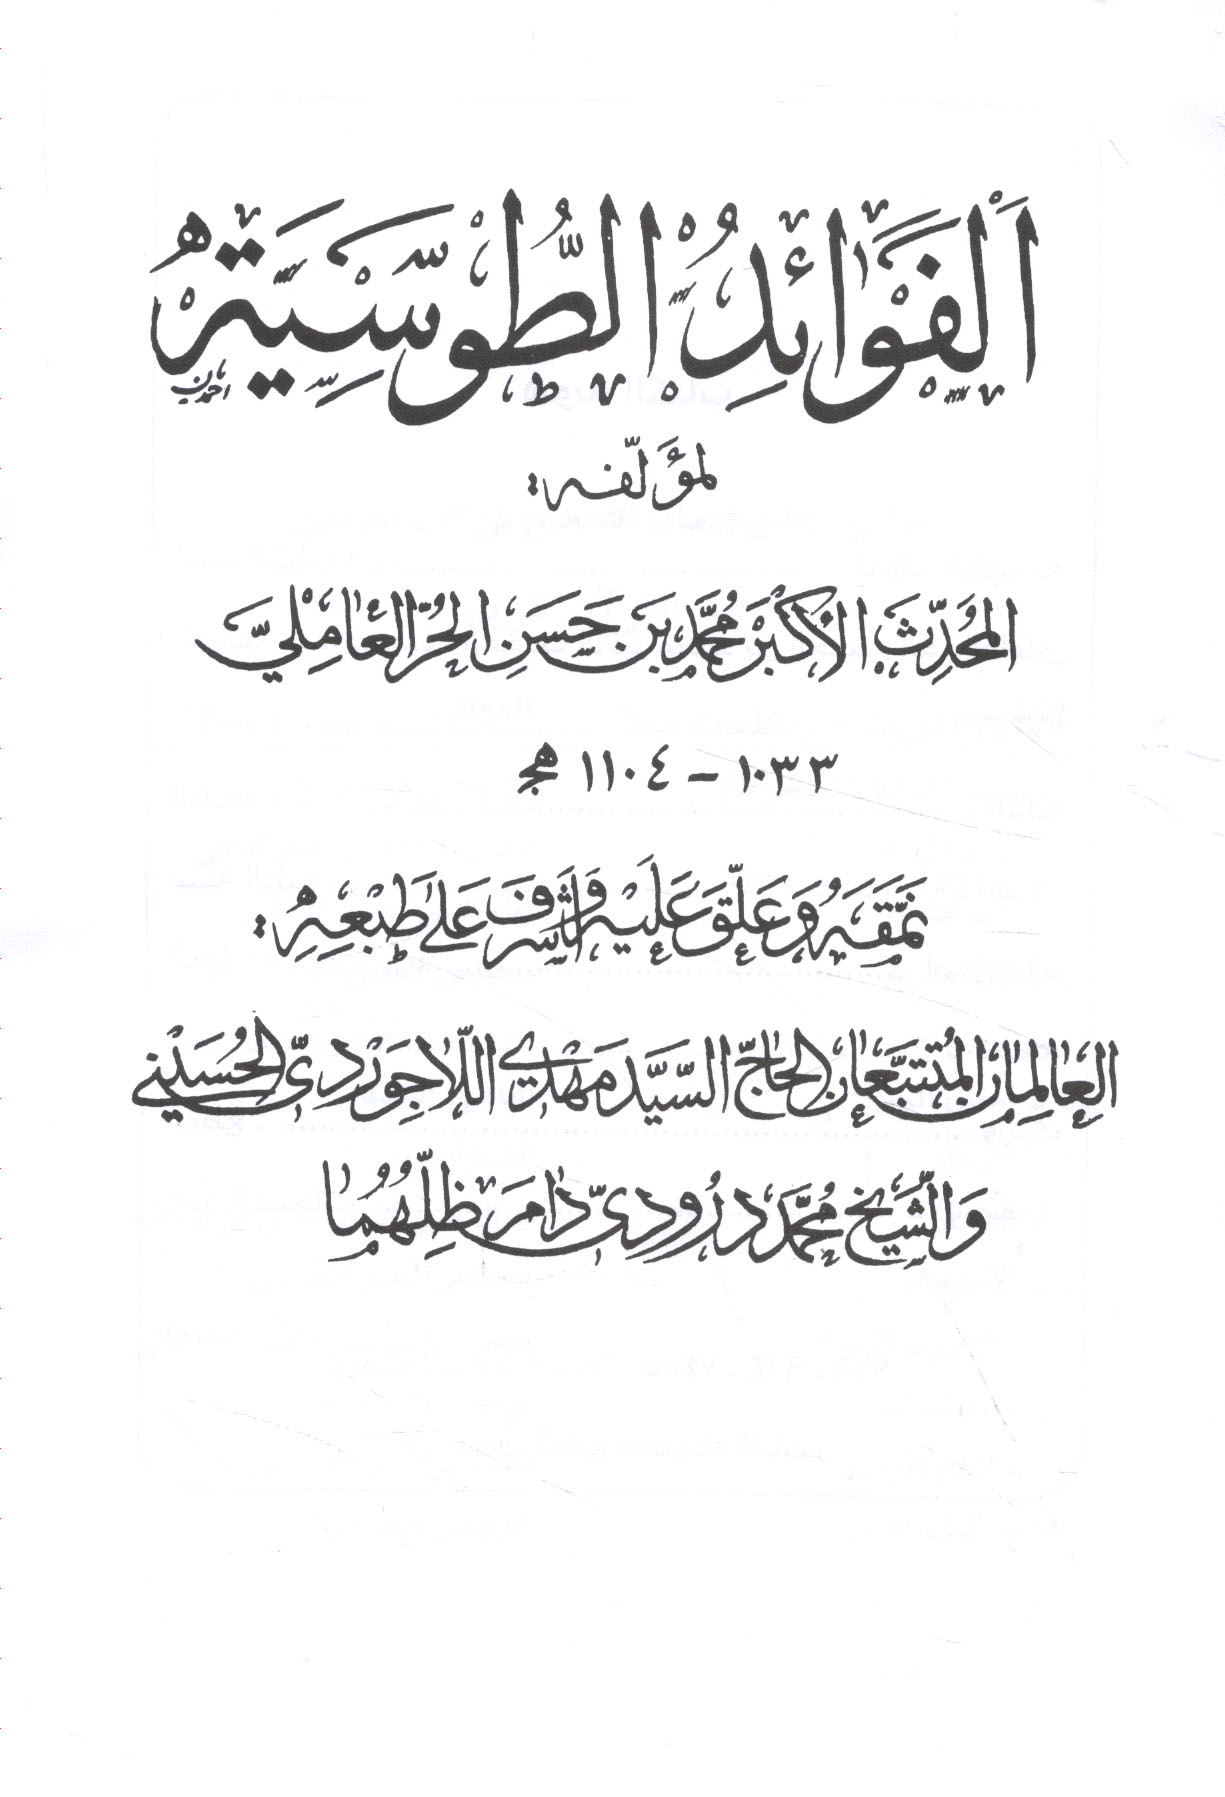 اَلْفَوَائِدُ الطُّوسِيَّةُ
لمؤَلّفه:
المُحَدِّثِ الاَكْبَرْ مُحَمَّدِ بنَ حَسَنِ الحُرّ العٰامِليّ
١٠٣٣ – ١١٠٤ هج
نَمَّقَهُ وَعَلّقَ عَلَيْهِ وَاَشرَفَ عَلىَ طَبْعِهِ:
العٰالِمٰان المُتتبّعٰان الحٰاجّ السَيَّد مَهْدي اللّاجَوَرْدىّ الحُسَيْني
وَالشَّيخ مُحَمَّد دُرُودىّ دٰامَ ظِلّهُمٰا